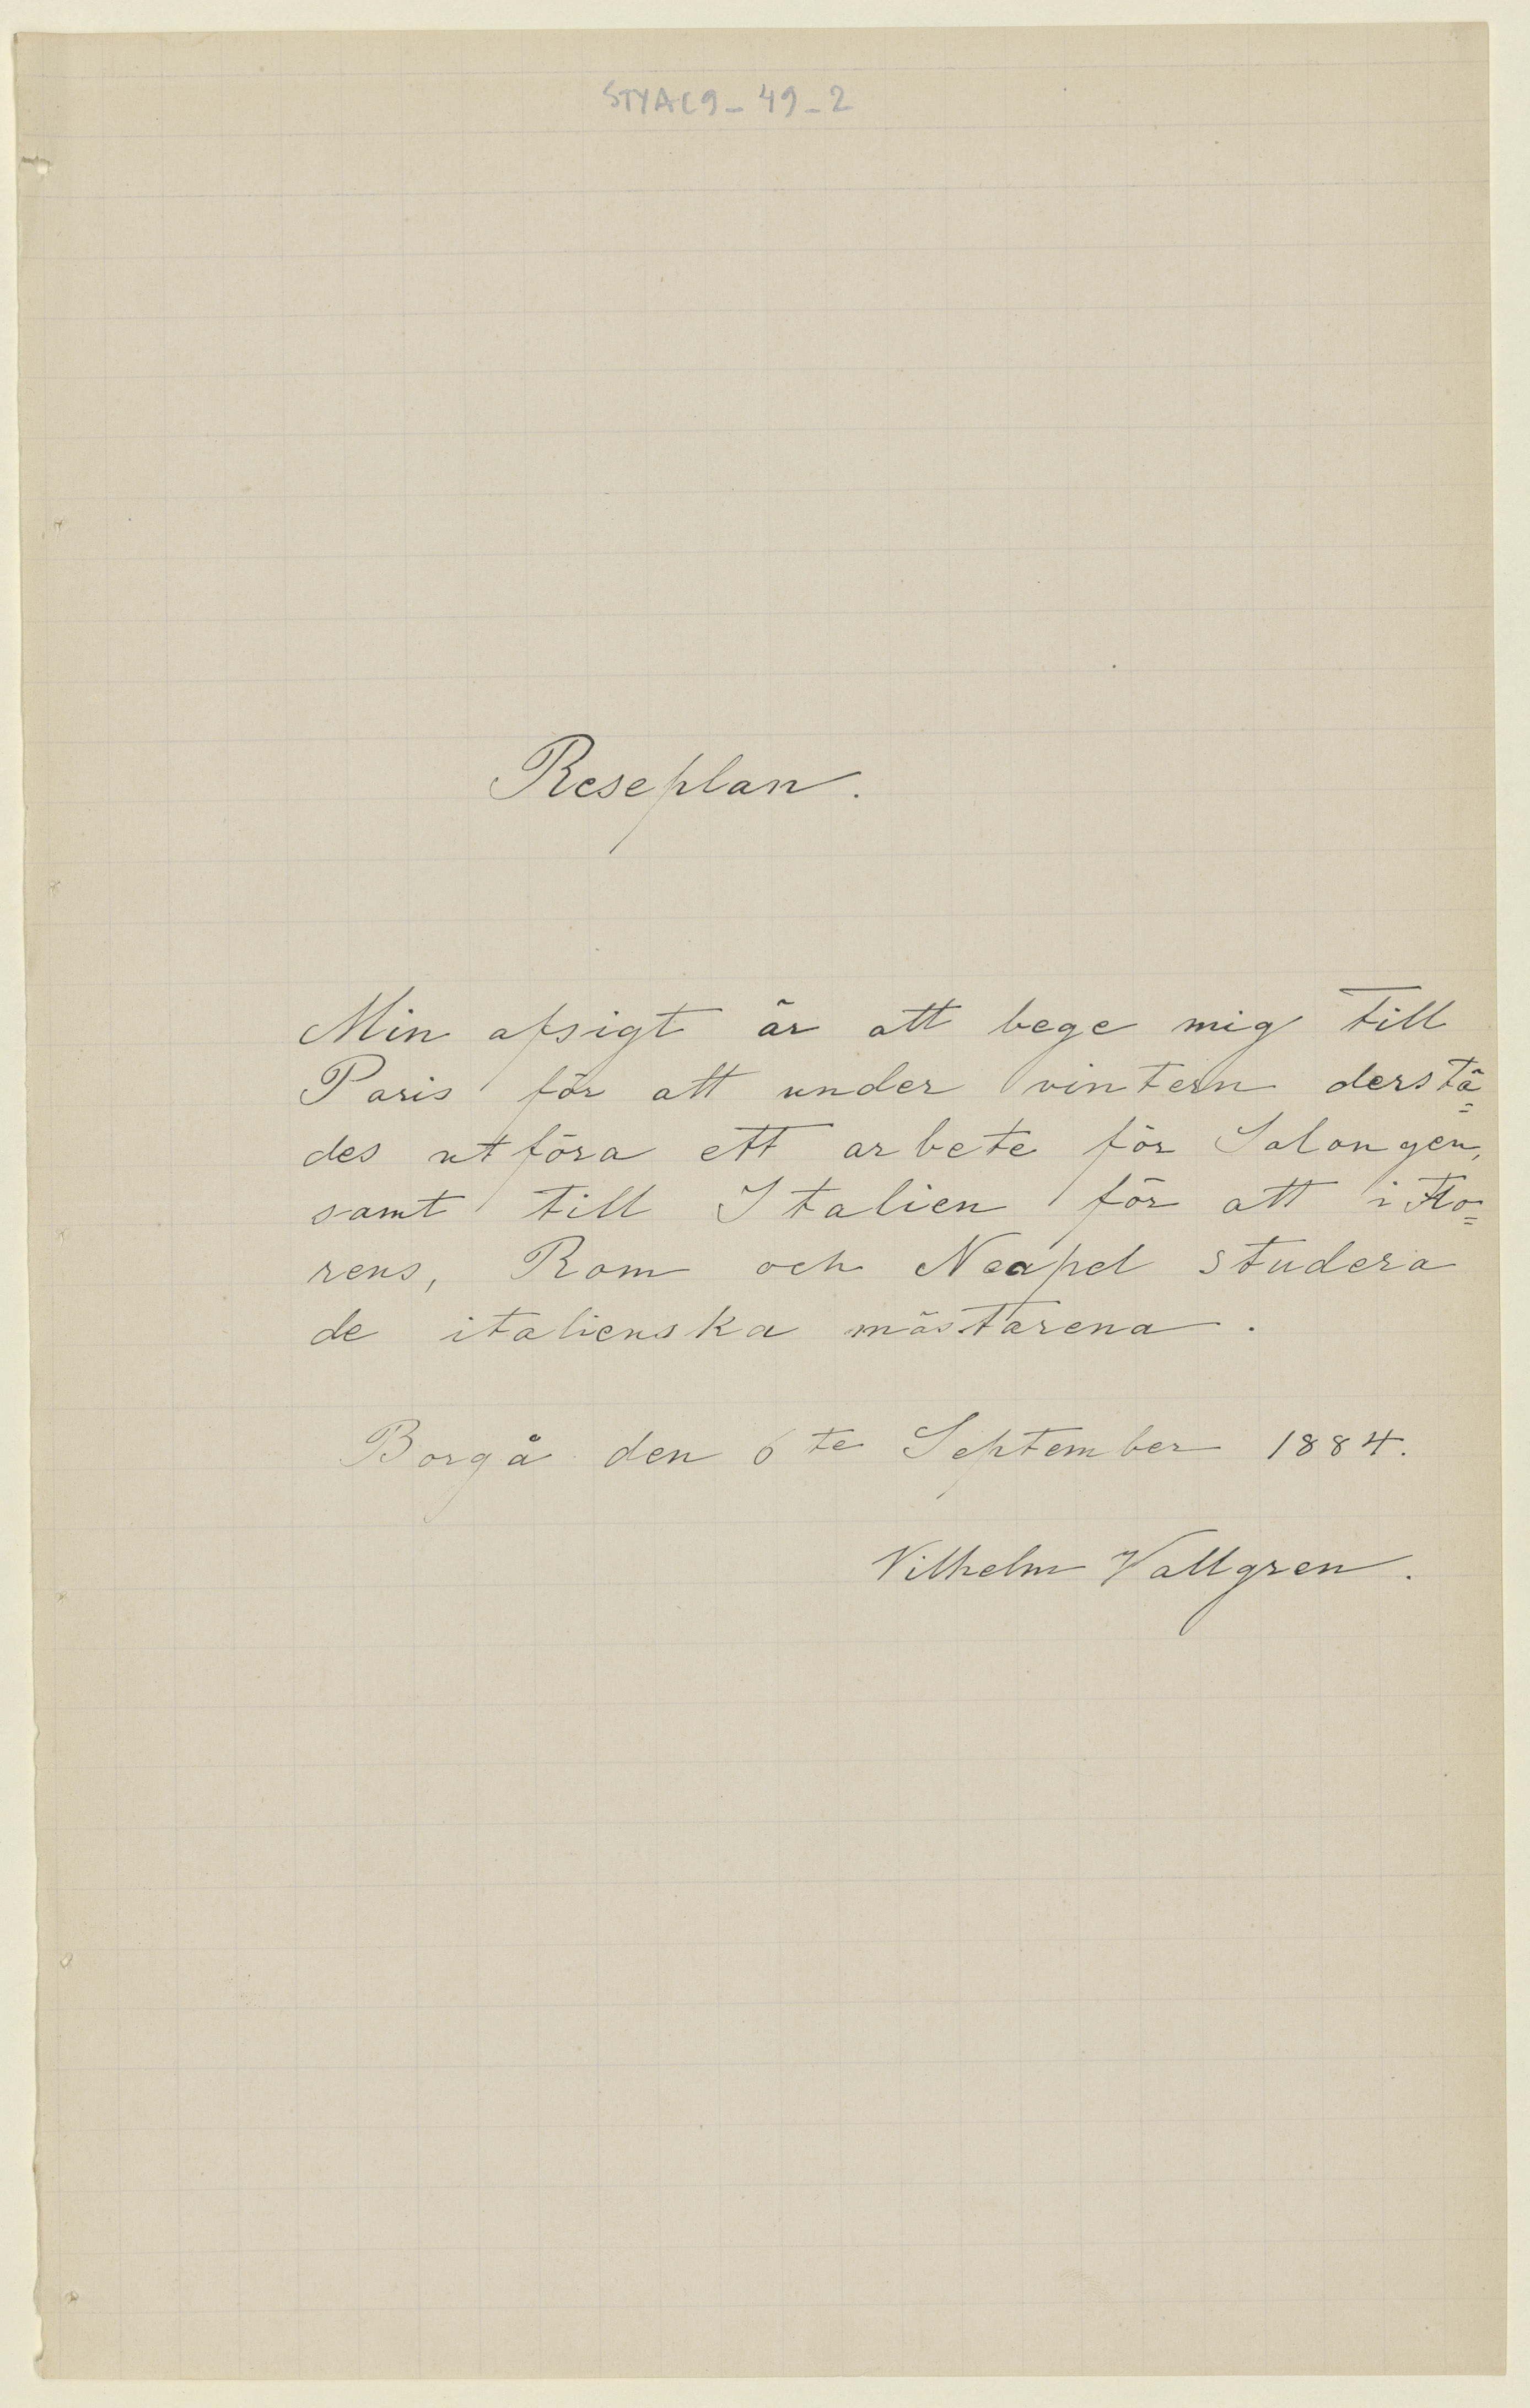 STYAC9-49-2
Reseplan.
Min afsigt är att bege mig till
Paris för att under vintern derstä=
des utföra ett arbete för Salongen,
samt till Italien för att i Flo=
rens, Rom och Neapel studera
de italienska mästarena.
Borgå den 6te September 1884.
Vilhelm Vallgren.